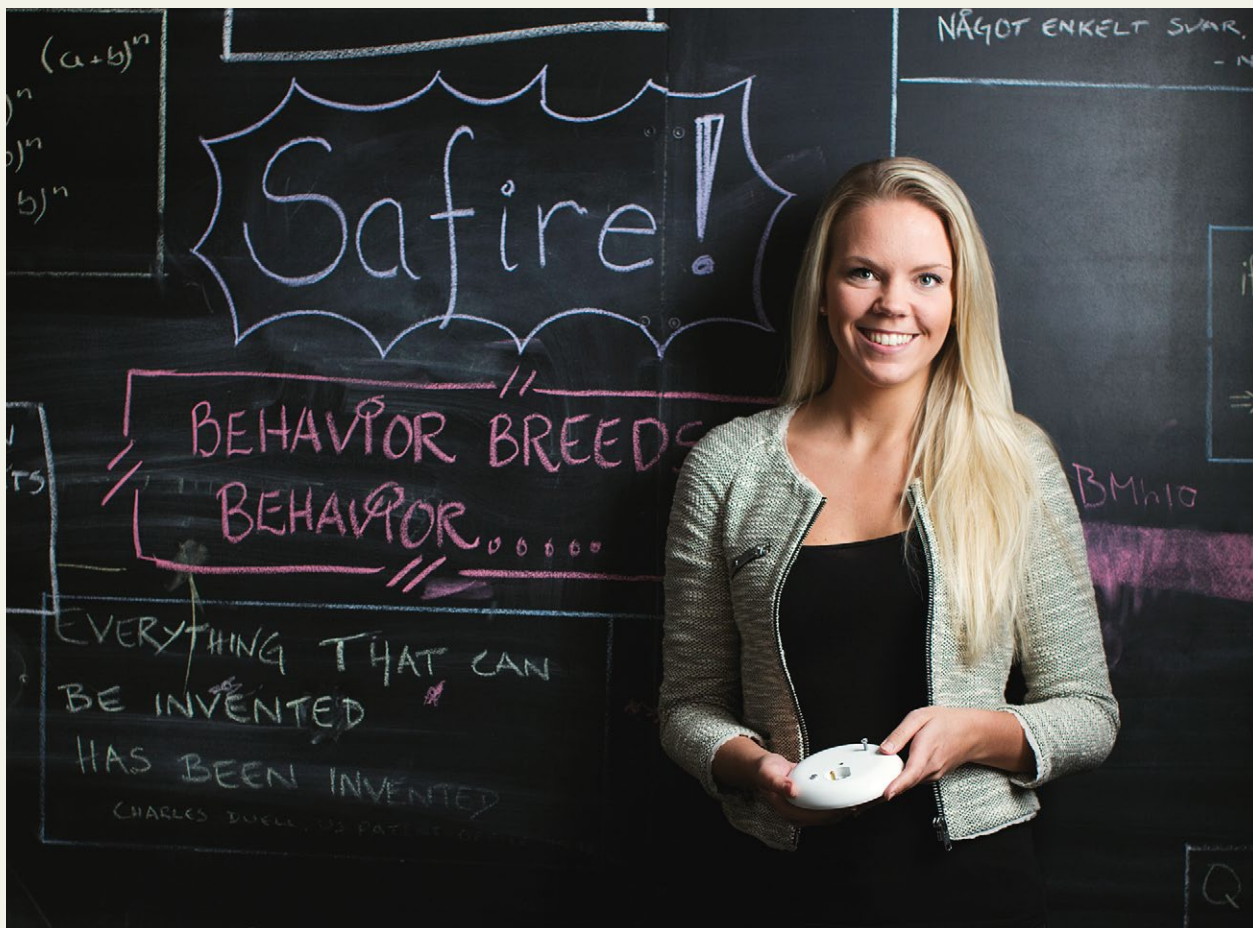 (a+b)ⁿ
NÅGOT ENKELT SVAR.
Safire!
BEHAVIOR BREEDS
BEHAVIOR.....
BMh10
EVERYTHING THAT CAN
BE INVENTED
HAS BEEN INVENTED
CHARLES DUELL, US PATENT
Q